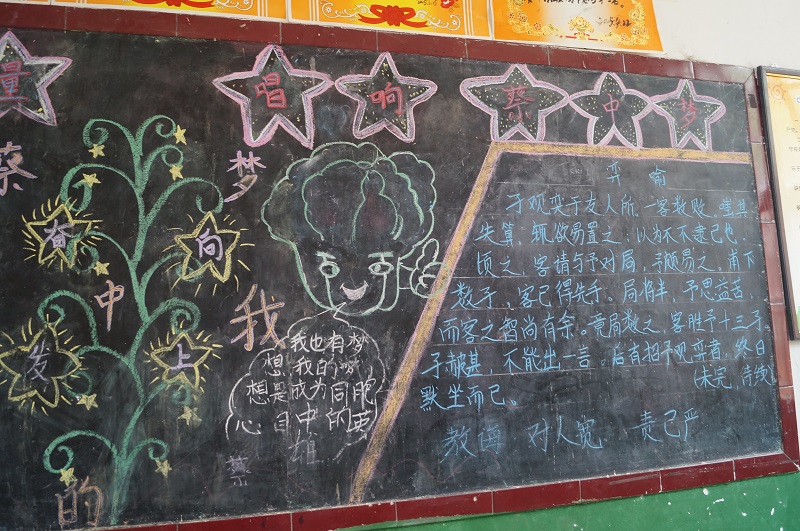 量
唱
响
蔡
中
梦
蔡
中
的
梦
我
奋
发
向
上
弈喻
予观奕于友人所,一客数败,嗤其
失算,辄欲易置之,以为不逮己也。
顷之,客请与予对局,予颇易之,甫下
数子,客已得先手。局将半,予思益苦,
而客之智尚有余。竟局数之,客胜予十三子。
予赧甚,不能出一言。后有招予观弈者,终日
默坐而已。
(未完,待续)
教诲 对人宽 责己严
我也有梦
想我的
想是成为同
心目中的
雄
蔡